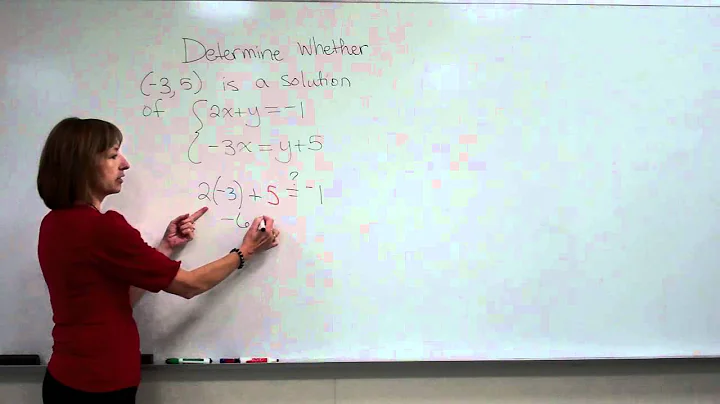 Determine Whether
(-3,5) is a solution
of { 2x+y=-1
-3x=y+5
2(-3)+5 ?= -1
-6